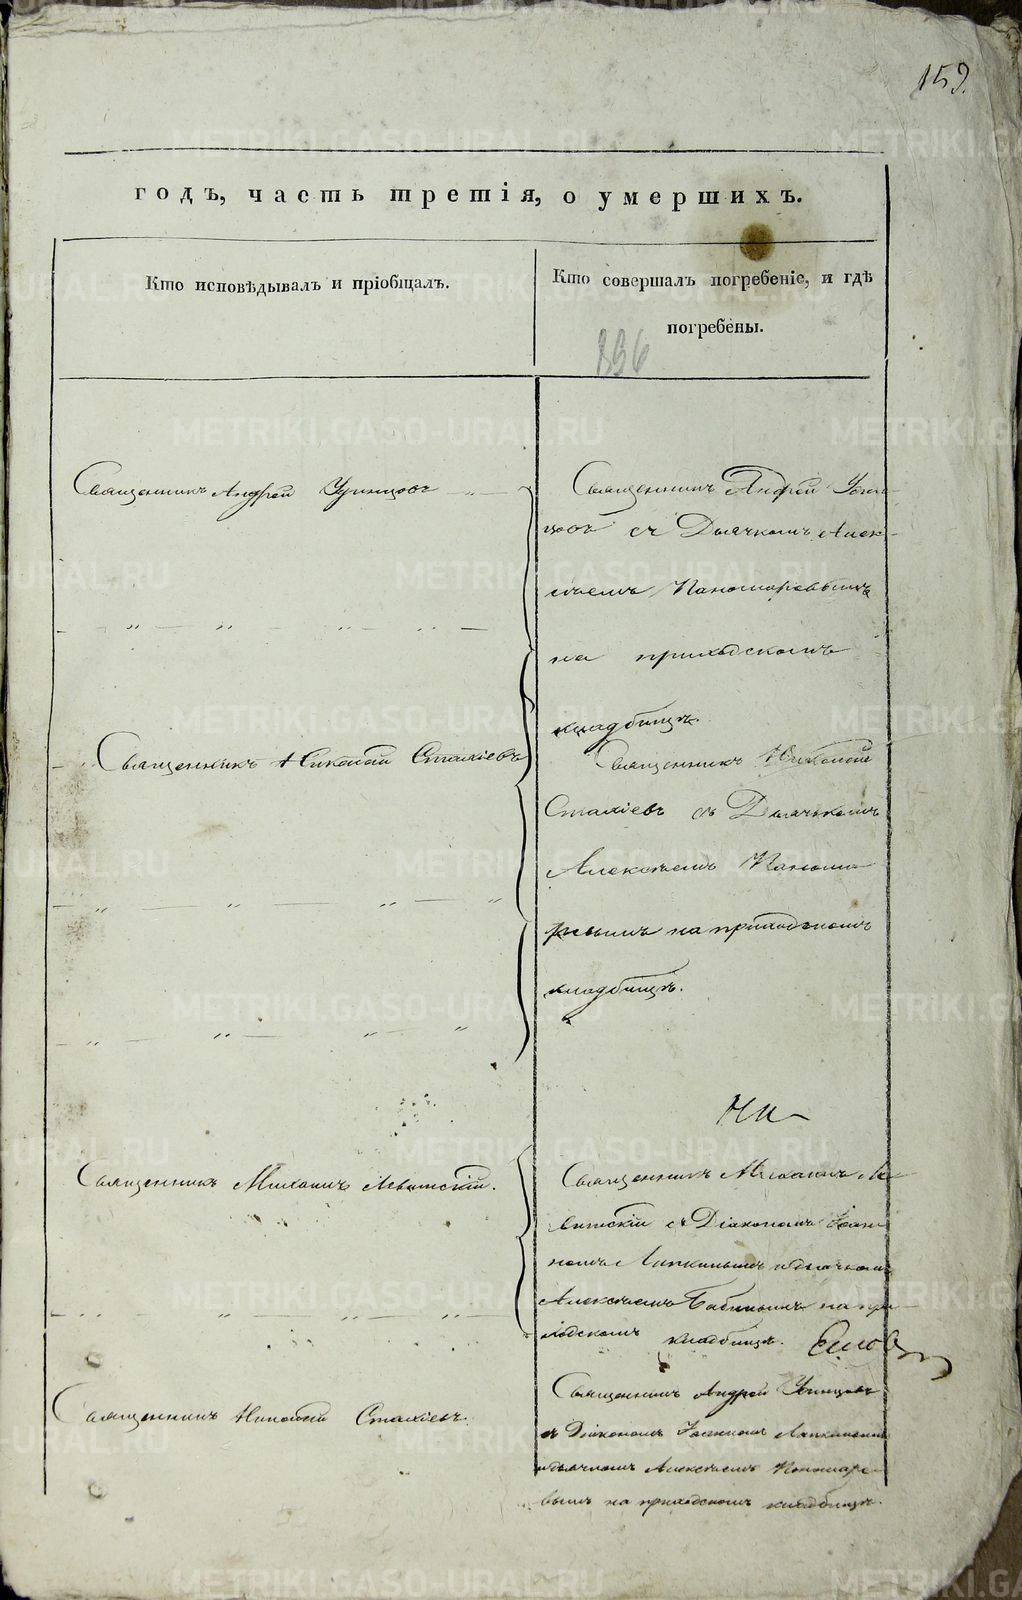 159.
годъ, часть третія, о умершихъ.
Кто исповѣдывалъ и пріобщалъ.
Кто совершалъ погребеніе, и гдѣ
погребены.
896
Священникъ Андрей Удинцовъ
Священникъ Андрей Удин-
цовъ съ Дьячкомъ Алек-
сѣемъ Пономаревымъ
на приходскомъ
кладбищѣ.
Священникъ Николай Стахіевъ
Священникъ Николай
Стахіевъ съ Дьячькомъ
Алексѣемъ Понома
ревымъ на приходскомъ
кладбищѣ.
Священникъ Михаилъ Левитскій.
Священникъ Михаилъ Ле-
витскій съ Діакономъ Іоан-
номъ Лапкинымъ и дьячкомъ
Алексѣемъ Бабинымъ на при-
ходскомъ кладбищѣ.
Священникъ Николай Стахіевъ.
Священникъ Андрей Удинцовъ
съ Діакономъ Іоанномъ Лапкинымъ
и дьячкомъ Алексѣемъ Пономаре-
вымъ на приходскомъ кладбищѣ.
METRIKI.GASO-URAL.RU